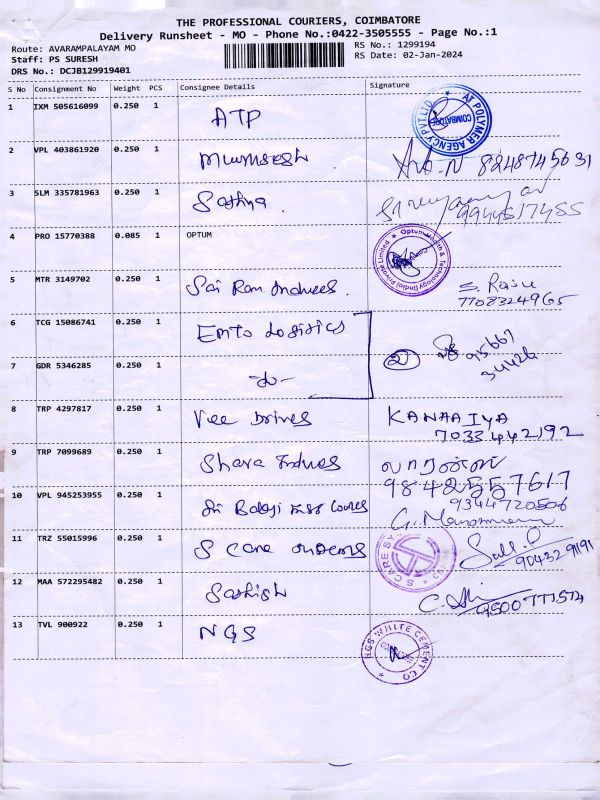 THE PROFESSIONAL COURIERS, COIMBATORE
Delivery Runsheet - MO - Phone No.:0422-3505555 - Page No.:1
Route: AVARAMPALAYAM MO
Staff: PS SURESH
DRS No.: DCJB129919401
RS No.: 1299194
RS Date: 02-Jan-2024
S No Consignment No Weight PCS Consignee Details Signature
1 IXM 505616099 0.250 1 ATP
AT POLYMER AGENCY PVT LTD
COIMBATORE
2 VPL 403861920 0.250 1
8248745631
3 SLM 335781963 0.250 1 Sathya
9944517455
4 PRO 15770388 0.085 1 OPTUM
Optum Health & Technology (India) Private Limited
5 MTR 3149702 0.250 1 Sai Ram
S. Raju
7708324965
6 TCG 15086741 0.250 1 EMTO Logistics
2
95667
34426
7 GDR 5346285 0.250 1 do-
8 TRP 4297817 0.250 1 Vee Drives KANAAIYA
7033442192
9 TRP 7099689 0.250 1 Shara
9842557617
10 VPL 945253955 0.250 1 Sri Balaji
9344720506
11 TRZ 55015996 0.250 1 S Care
S CARE SY
9043291191
12 MAA 572295482 0.250 1 Sathish
9500777574
13 TVL 900922 0.250 1 NGS
NGS WHITE CEMENT CO